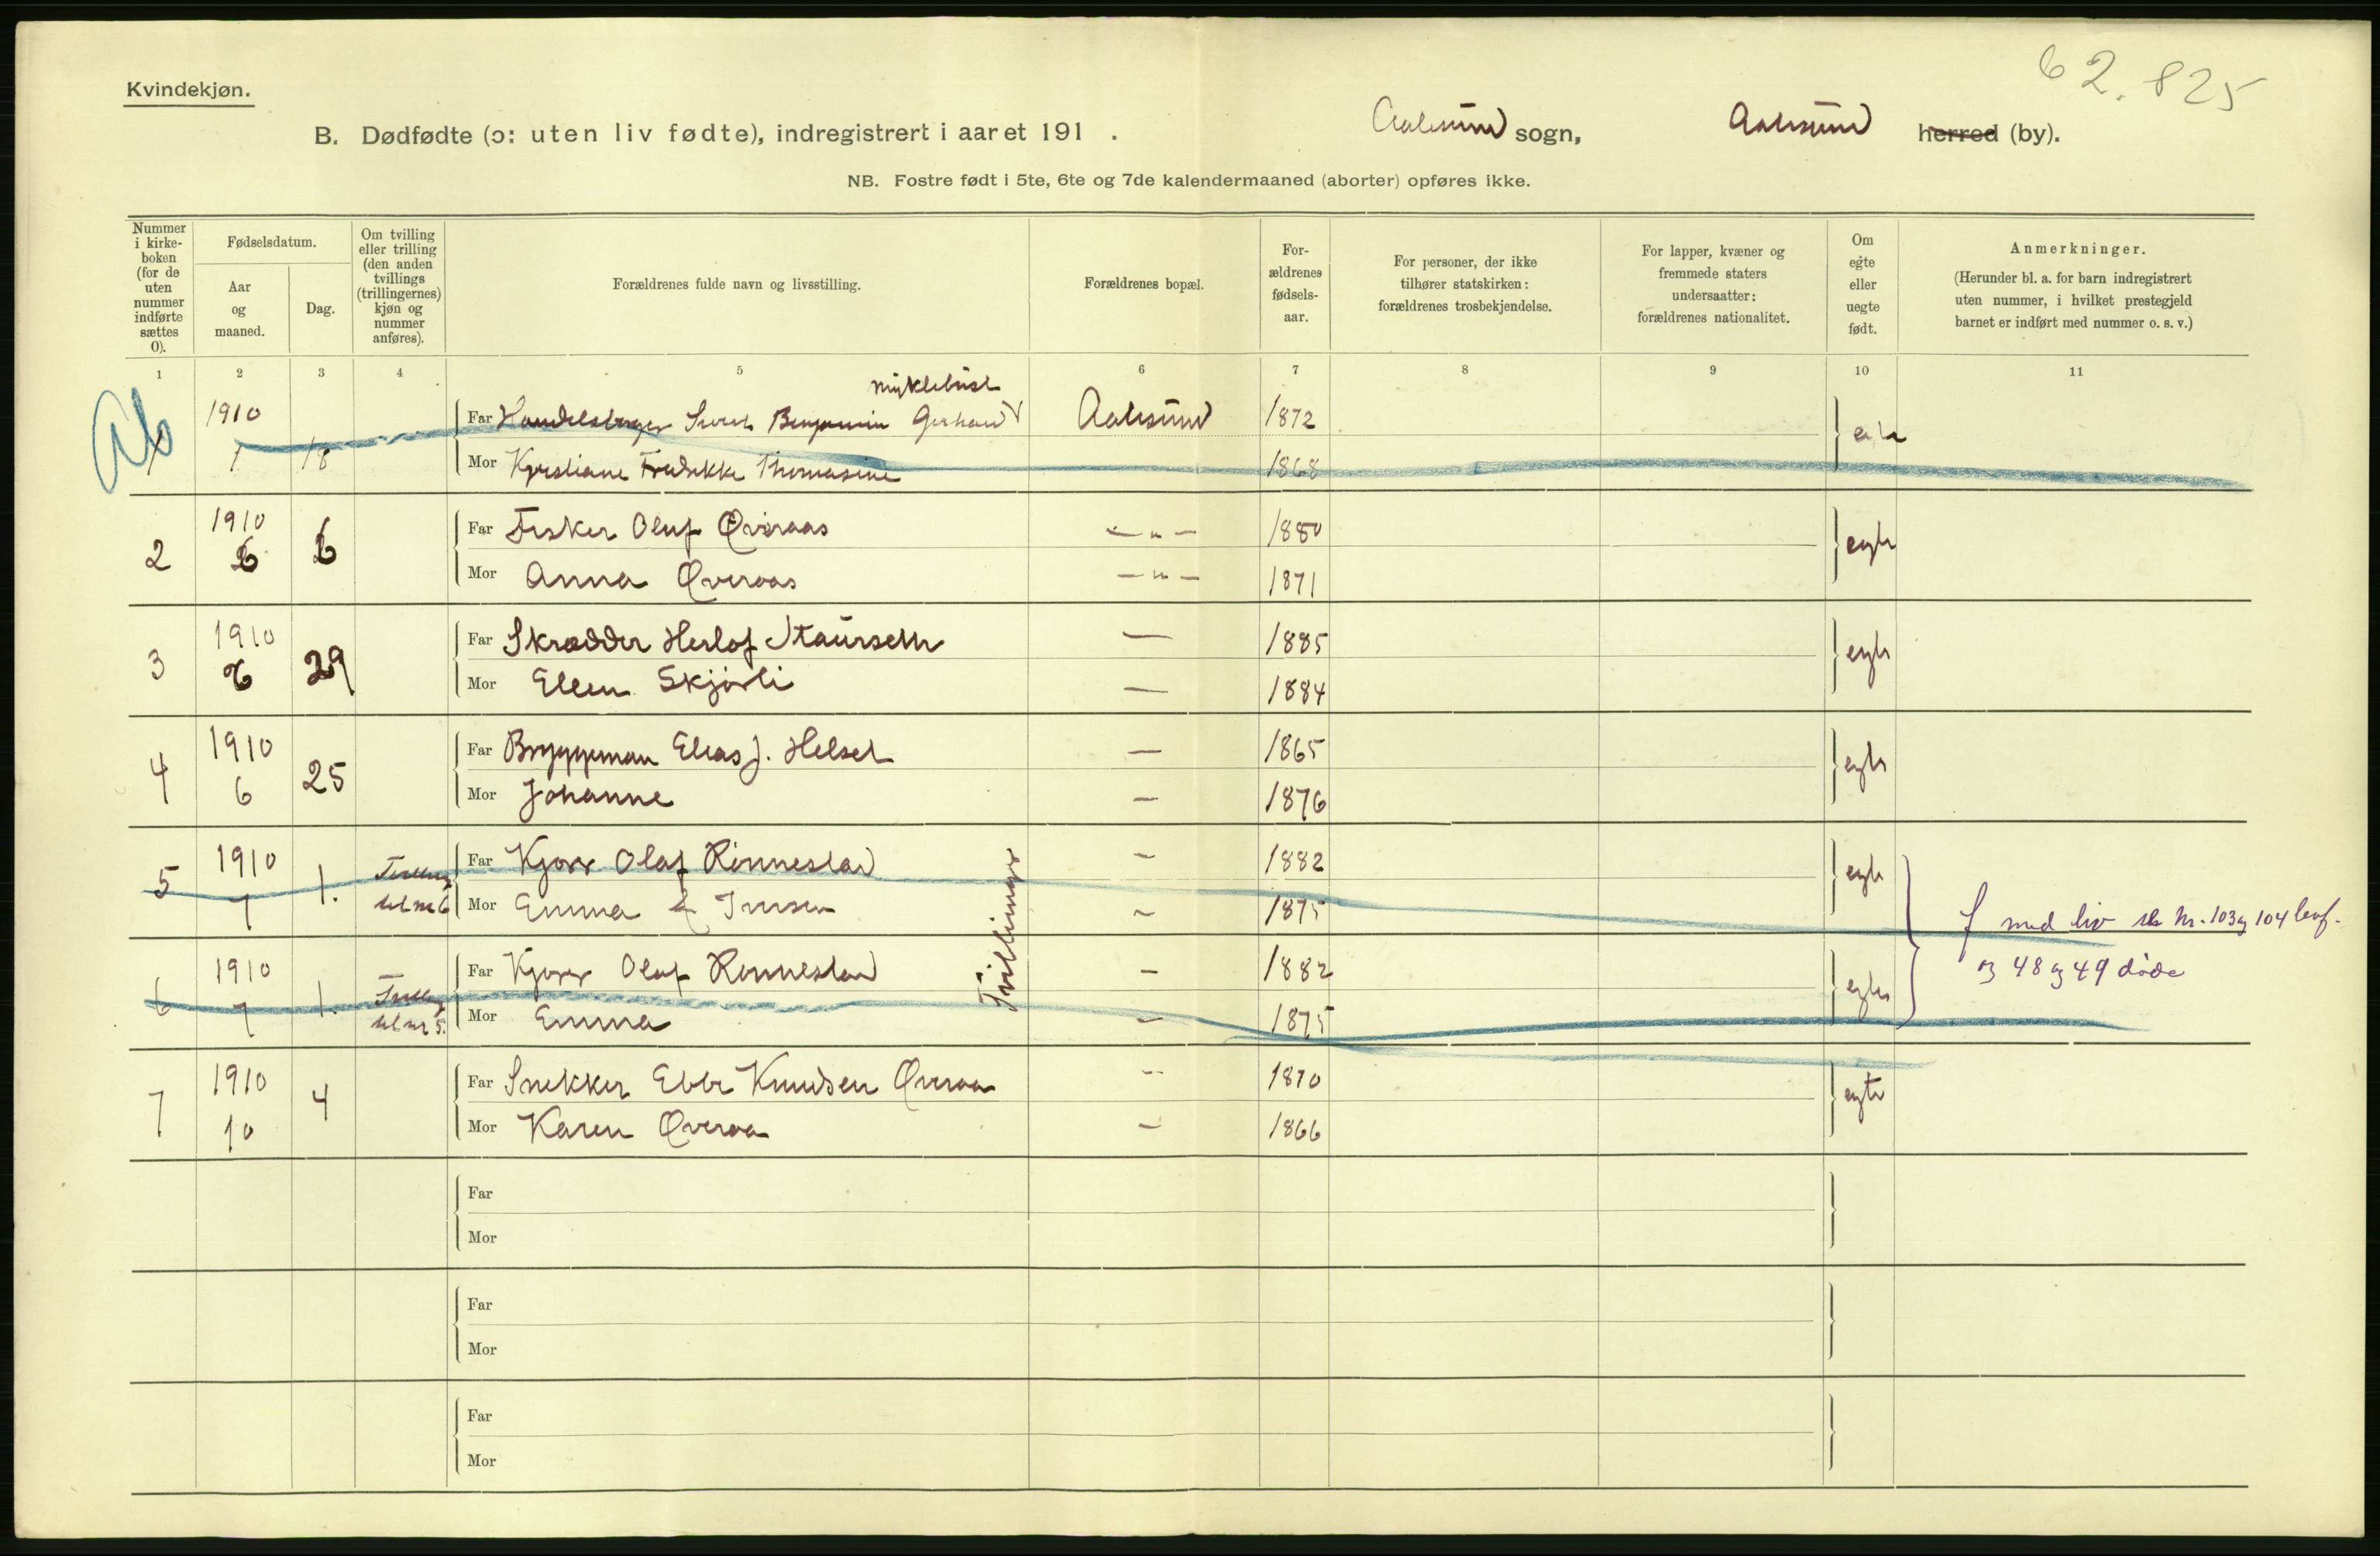 62.825
Kvindekjøn.
B. Dødfødte (ɔ: uten liv fødte), indregistrert i aaret 191 . Aalesund sogn, Aalesund herred (by).
NB. Fostre født i 5te, 6te og 7de kalendermaaned (aborter) opføres ikke.
Nummer i kirke-boken (for de uten nummer indførte sættes 0).
Fødselsdatum.
Aar og maaned.
Dag.
Om tvilling eller trilling (den anden tvillings (trillingernes) kjøn og nummer anføres).
Forældrenes fulde navn og livsstilling.
Forældrenes bopæl.
For-ældrenes fødsels-aar.
For personer, der ikke tilhører statskirken: forældrenes trosbekjendelse.
For lapper, kvæner og fremmede staters undersaatter: forældrenes nationalitet.
Om egte eller uegte født.
Anmerkninger.
(Herunder bl. a. for barn indregistrert uten nummer, i hvilket prestegjeld barnet er indført med nummer o. s. v.)
1 2 3 4 5 6 7 8 9 10 11
Ab
Myklebust
1910 Far Handelsborger Benjamin Gerhard Aalesund 1872
1 18 Mor Kristiane Fredrikke Thomasine 1868
2 1910 6 6 Far Fisker Oluf Øveraas — " — 1880 egte
Mor Anna Øveraas — " — 1871
3 1910 29 Far Skrædder Herlof Staurseth — 1885 egte
Mor Ellen Skjørli — 1884
4 1910 6 25 Far Bryggeman Elias J. Helset — 1865 egte
Mor Johanne — 1876
5 1910 7 1. Tvilling til nr 6 Far Olaf Rønnestad — 1882 egte
Mor Emma — 1875
Tvillinger
f med liv se Nr. 103 og 104 levf.
og 48 og 49 døde
6 1910 7 1. Tvilling til nr 5. Far Olaf Rønnestad — 1882 egte
Mor Emma — 1875
7 1910 10 4 Far Snekker Ebbe Knudsen Øveraa — 1870 egte
Mor Karen Øveraa — 1866
Far
Mor
Far
Mor
Far
Mor